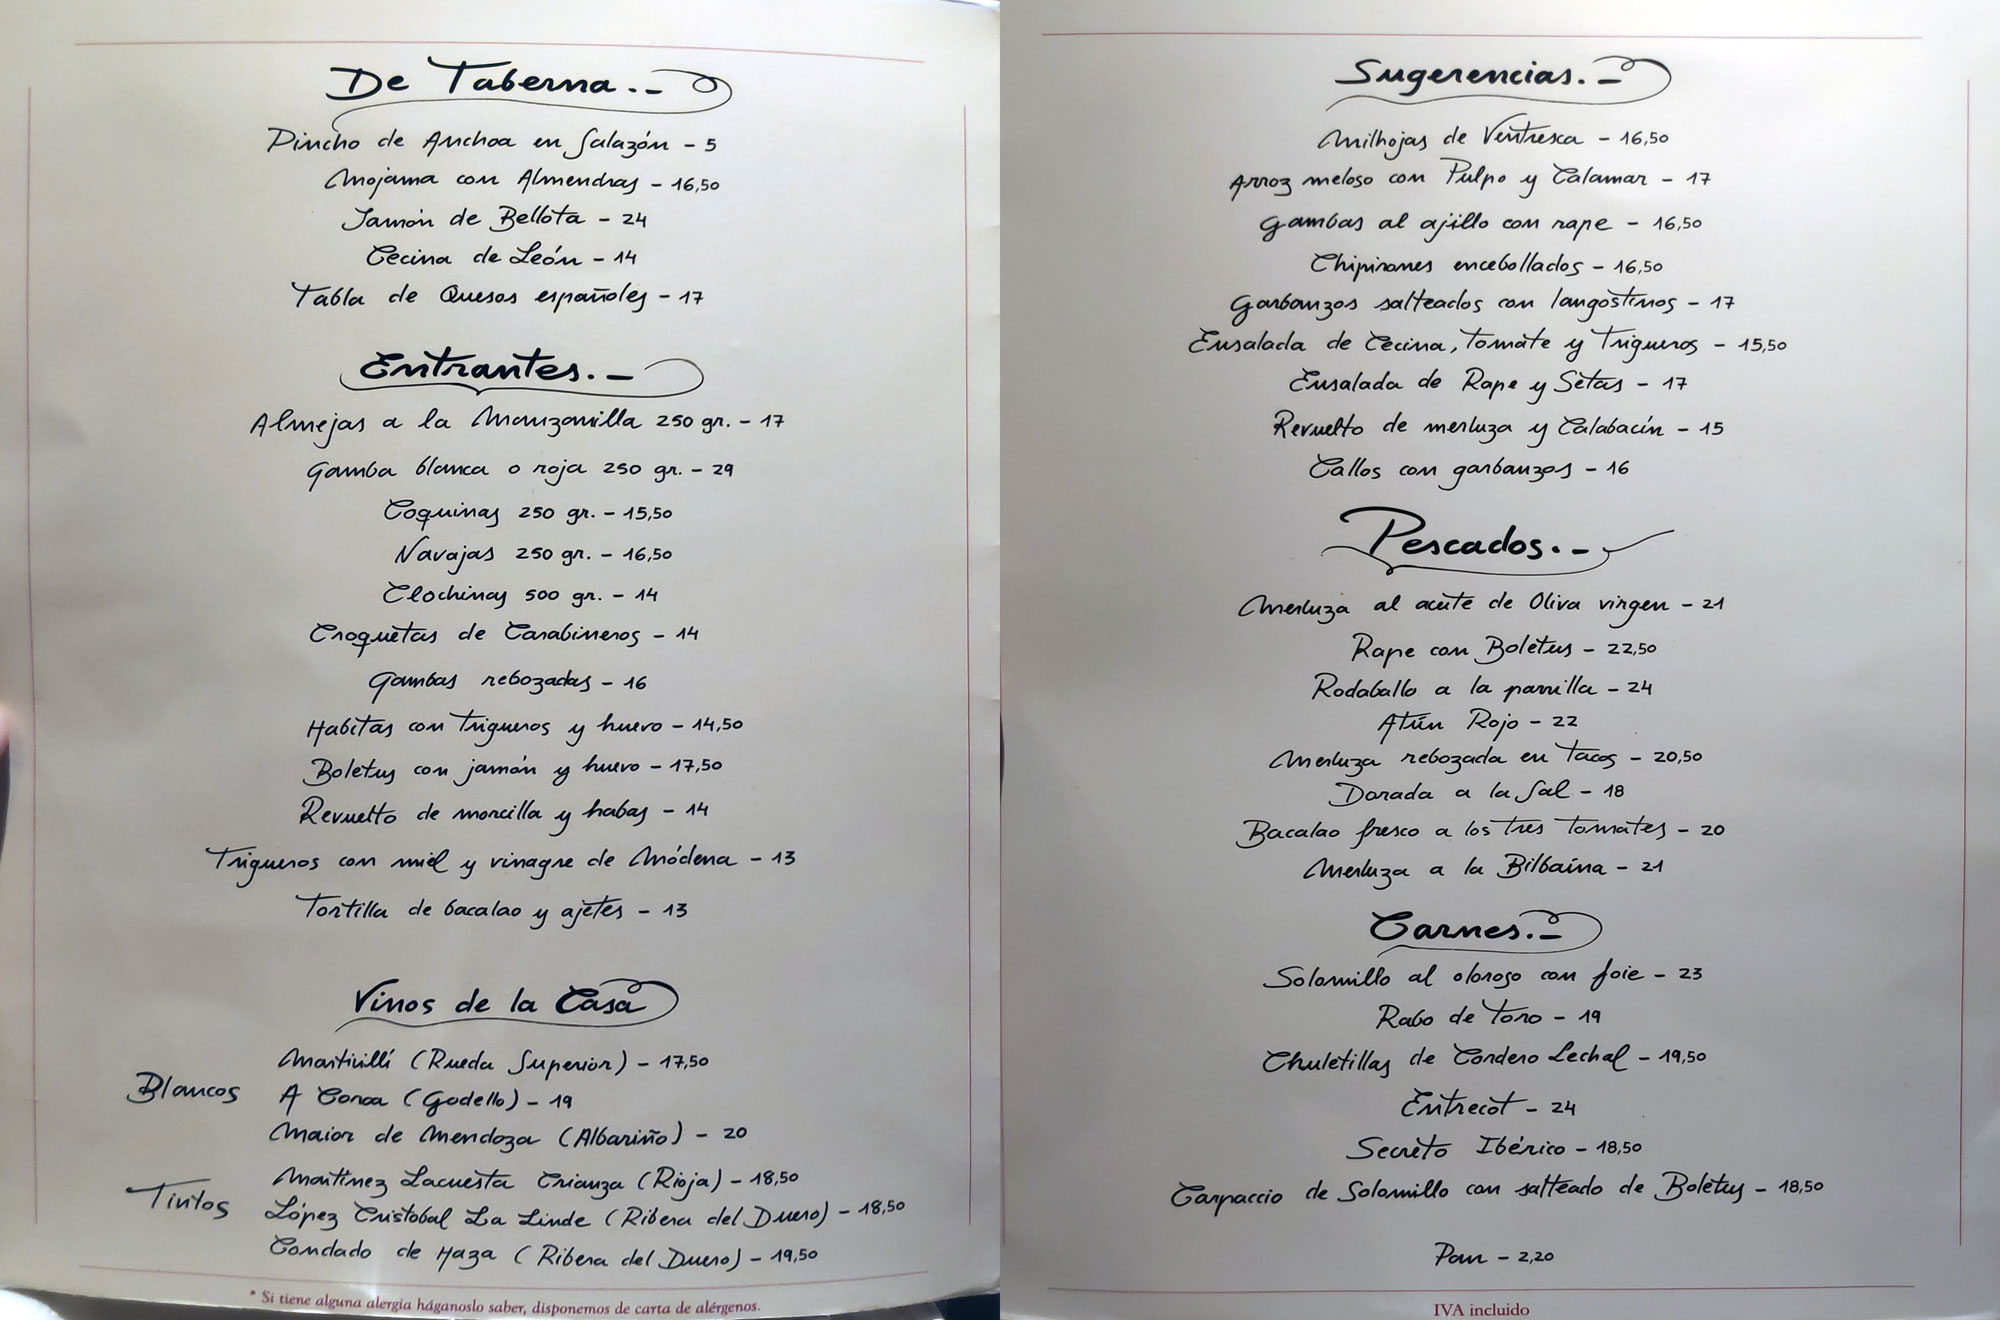 De Taberna.-
Pincho de Anchoa en Salazón - 5
Mojama con Almendras - 16,50
Jamón de Bellota - 24
Cecina de León - 14
Tabla de Quesos españoles - 17
Entrantes.-
Almejas a la Manzanilla 250 gr. - 17
Gamba blanca o roja 250 gr. - 29
Coquinas 250 gr. - 15,50
Navajas 250 gr. - 16,50
Clochinas 500 gr. - 14
Croquetas de Carabineros - 14
Gambas rebozadas - 16
Habitas con Trigueros y huevo - 14,50
Boletus con jamón y huevo - 17,50
Revuelto de morcilla y habas - 14
Trigueros con miel y vinagre de Módena - 13
Tortilla de bacalao y ajetes - 13
Vinos de la Casa
Blancos
Martivillí (Rueda Superior) - 17,50
A Coroa (Godello) - 19
Maior de Mendoza (Albariño) - 20
Tintos
Martínez Lacuesta Crianza (Rioja) - 18,50
López Cristobal La Linde (Ribera del Duero) - 18,50
Condado de Haza (Ribera del Duero) - 19,50
* Si tiene alguna alergia háganoslo saber, disponemos de carta de alérgenos.
Sugerencias.-
Milhojas de Ventresca - 16,50
Arroz meloso con Pulpo y Calamar - 17
Gambas al ajillo con rape - 16,50
Chipirones encebollados - 16,50
Garbanzos salteados con langostinos - 17
Ensalada de Cecina, Tomate y Trigueros - 15,50
Ensalada de Rape y Setas - 17
Revuelto de merluza y Calabacín - 15
Callos con garbanzos - 16
Pescados.-
Merluza al aceite de Oliva virgen - 21
Rape con Boletus - 22,50
Rodaballo a la parrilla - 24
Atún Rojo - 22
Merluza rebozada en Tacos - 20,50
Dorada a la Sal - 18
Bacalao fresco a los Tres Tomates - 20
Merluza a la Bilbaína - 21
Carnes.-
Solomillo al oloroso con foie - 23
Rabo de Toro - 19
Chuletillas de Cordero Lechal - 19,50
Entrecot - 24
Secreto Ibérico - 18,50
Carpaccio de Solomillo con salteado de Boletus - 18,50
Pan - 2,20
IVA incluido